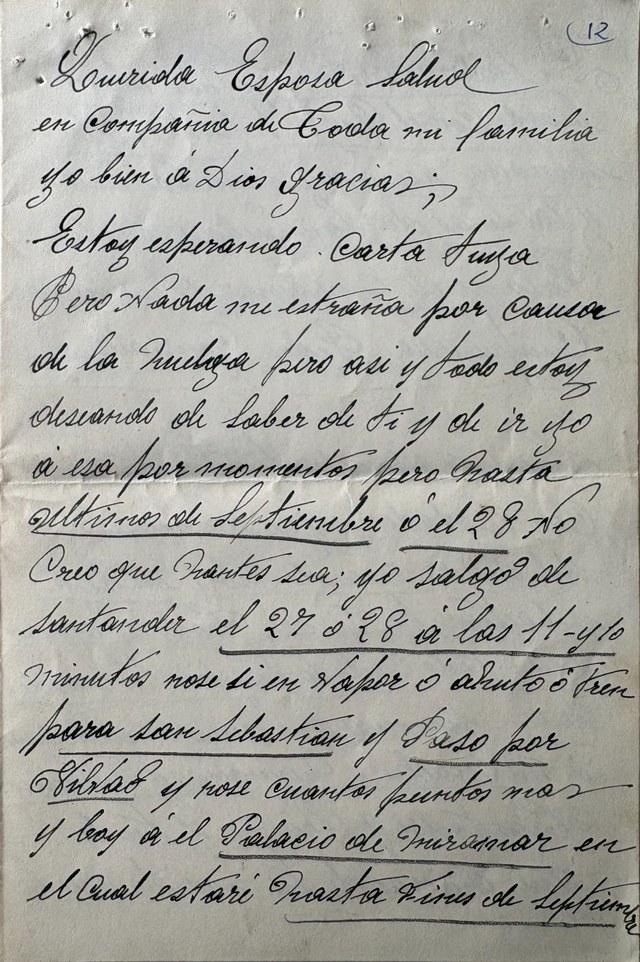 12
Querida Esposa Salud
en Compañia de Toda mi familia
yo bien á Dios gracias;
Estoy esperando. Carta tuya
Pero Nada me estraña por causa
de la huelga pero asi y todo estoy
deseando de saber de ti y de ir yo
á esa por momentos pero hasta
ultimos de Septiembre ó el 28 No
Creo que hantes sea; yo salgo de
santander el 27 ó 28 á las 11-y10
minutos nose si en Vapor ó ahuto ó Tren
para san Sebastian y Paso por
Vilvao y nose cuantos puntos mas
y boy á el Palacio de Miramar en
el Cual estaré hasta Fines de Septiembre